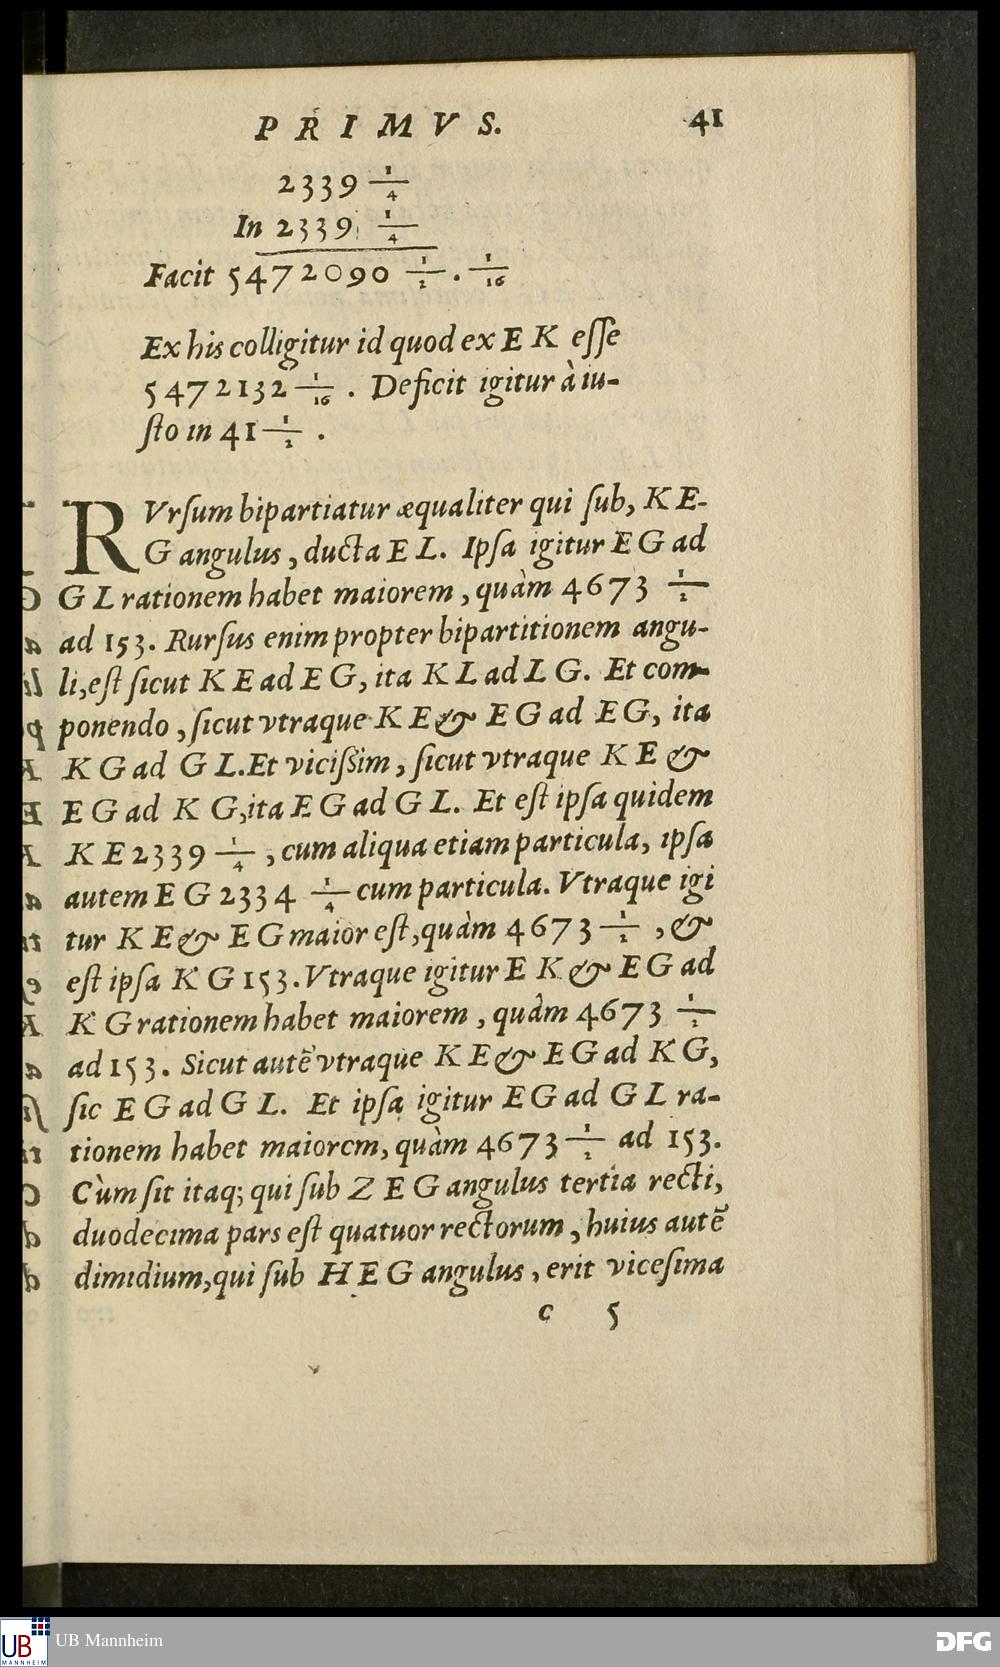 PRIMVS. 41
2339 1/4
In 2339 1/4
Facit 5472090 1/2 . 1/16
Ex his colligitur id quod ex E K eſſe
5472132 1/16 . Deficit igitur à iu-
ſto in 41 1/2 .
RVrſum bipartiatur æqualiter qui ſub, K E-
G angulus, ducta E L. Ipſa igitur E G ad
G L rationem habet maiorem, quàm 4673 1/2
ad 153. Rurſus enim propter bipartitionem angu-
li, eſt ſicut K E ad E G, ita K L ad L G. Et com-
ponendo, ſicut vtraque K E & E G ad E G, ita
K G ad G L. Et viciſsim, ſicut vtraque K E &
E G ad K G, ita E G ad G L. Et eſt ipſa quidem
K E 2339 1/4, cum aliqua etiam particula, ipſa
autem E G 2334 1/4 cum particula. Vtraque igi
tur K E & E G maior eſt, quàm 4673 1/2, &
eſt ipſa K G 153. Vtraque igitur E K & E G ad
K G rationem habet maiorem, quàm 4673 1/2
ad 153. Sicut autẽ vtraque K E & E G ad K G,
ſic E G ad G L. Et ipſa igitur E G ad G L ra-
tionem habet maiorem, quàm 4673 1/2 ad 153.
Cùm ſit itaq; qui ſub Z E G angulus tertia recti,
duodecima pars eſt quatuor rectorum, huius autẽ
dimidium, qui ſub H E G angulus, erit viceſima
c 5
UB MANNHEIM
UB Mannheim
DFG